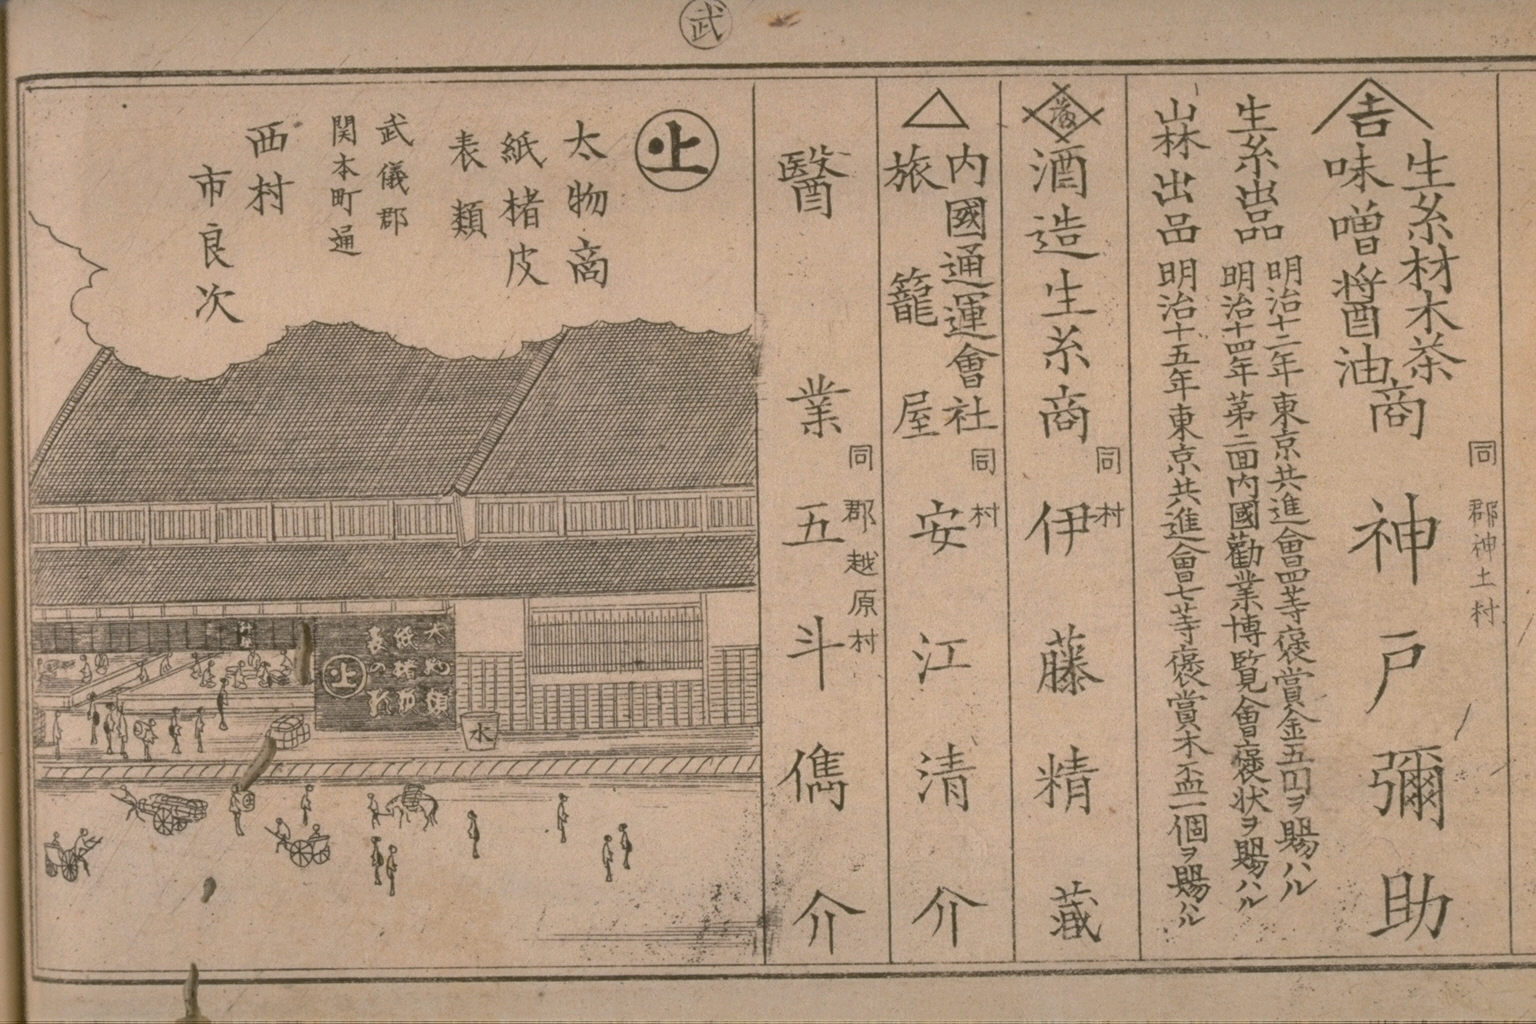 武
吉
生糸材木茶
味噌醤油
商
同郡神土村
神戸彌助
生糸出品
明治十二年東京共進會四等褒賞金五円ヲ賜ハル
明治十四年第二回内國勸業博覧會褒状ヲ賜ハル
山林出品
明治十五年東京共進會七等褒賞木盃一個ヲ賜ハル
酒造生糸商
同村
伊藤精藏
内國通運會社
旅籠屋
同村
安江清介
醫業
同郡越原村
五斗儁介
止
太物商
紙楮皮
表類
武儀郡
関本町通
西村
市良次
太物類
止
水